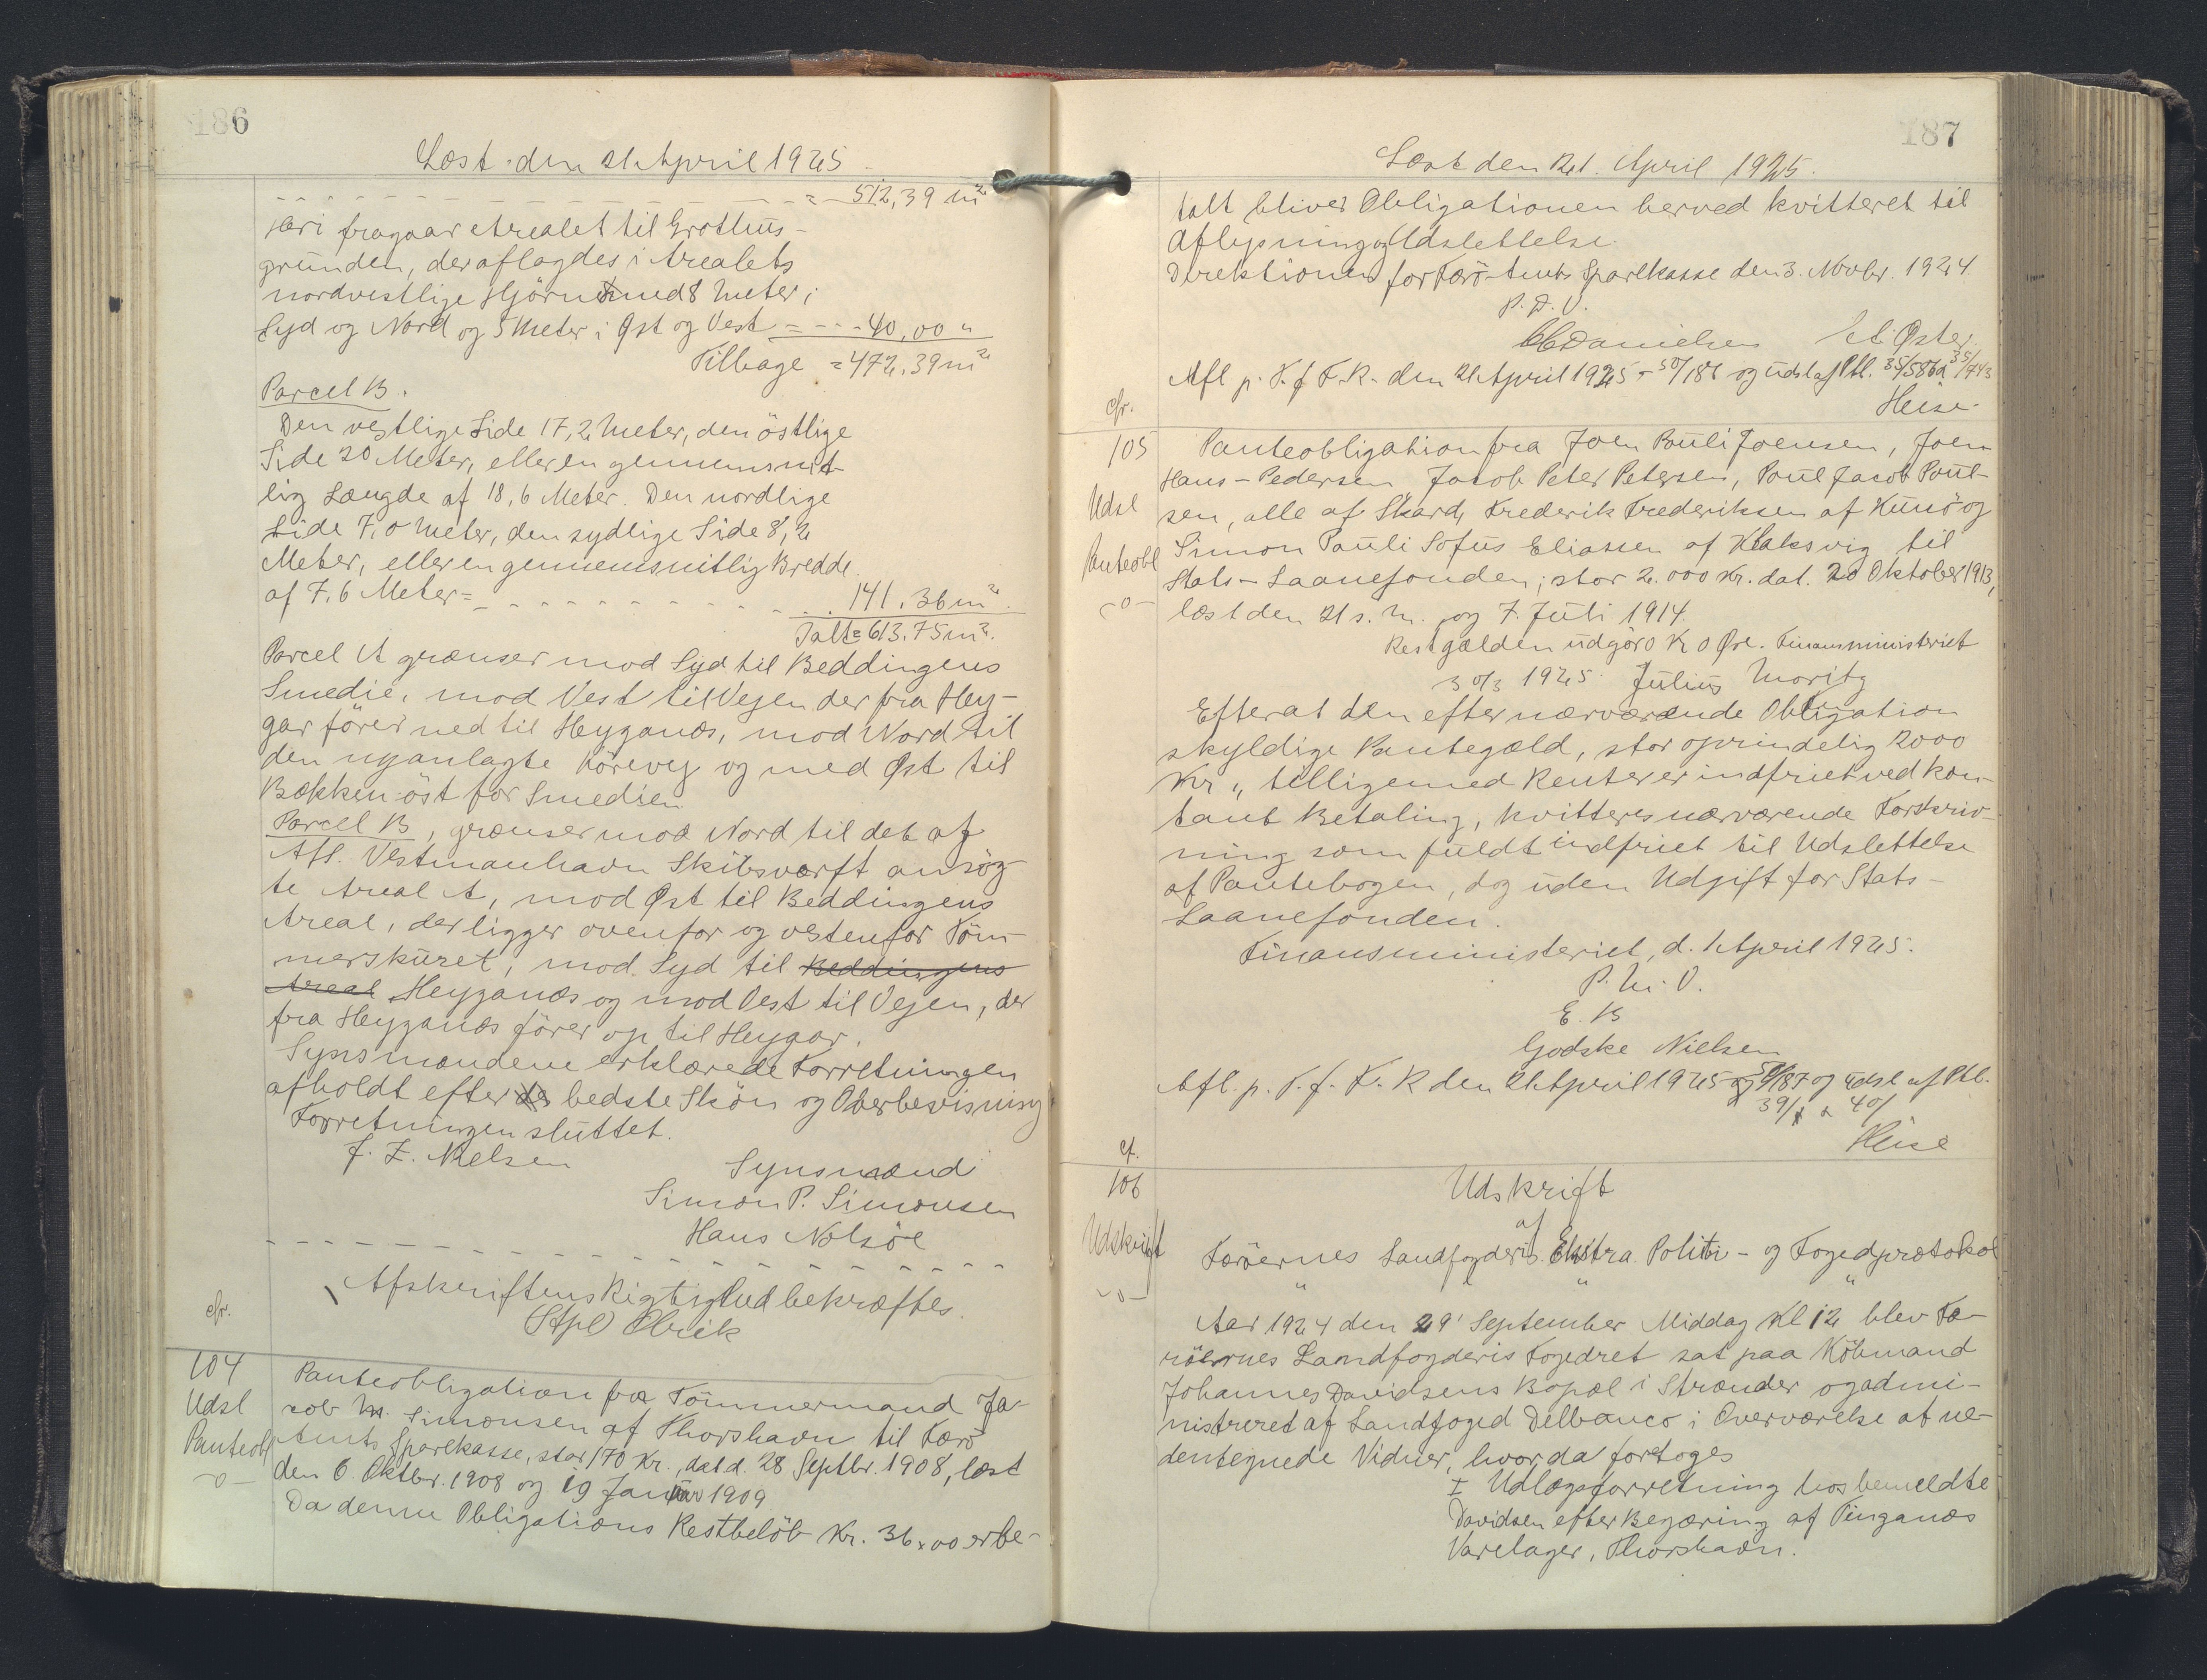 186
Læst den 21 April 1925
= 512,39 m²
heri fragaar Arealet til Grothus-
grunden, der aflagdes i Arealets
nordvestlige Hjörne med 8 Meter i
Syd og Nord og 5 Meter i Øst og Vest = - - - 40,00 "
Tilbage = 472,39 m²
Parcel B.
Den vestlige Side 17,2 Meter, den östlige
Side 20 Meter, eller en gennemsnit-
lig Længde af 18,6 Meter. Den nordlige
Side 7,0 Meter, den sydlige Side 8,2
Meter, eller en gennemsnitlig Bredde
af 7,6 Meter = 141.36 m²
Ialt = 613.75 m².
Parcel A grænser mod Syd til Beddingens
Smedie, mod Vest til Vejen der fra Hey-
gar förer ned til Heyganæs, mod Nord til
den nyanlagte Köreveg og med Øst til
Bækken öst for Smedien
Parcel B, grænser mod Nord til det af
Afl. Vestmanhavn Skibsværft ansög-
te Areal A, mod Øst til Beddingens
Areal, der ligger ovenfor og vestenfor Töm-
merskuret, mod Syd til Beddingens
Areal Heyganæs og mod Vest til Vejen, der
fra Heyganæs förer op til Heygar.
Synsmændene erklærede Forretningen
afholdt efter bedste Skön og Overbevisning
Forretningen sluttet.
J. Z. Nielsen
Synsmænd
Simon P. Simonsen
Hans Nolsöe
Afskriftens Rigtighed bekræftes.
cfr.
Olrik
104
Udsl
Panteobl
-o-
Panteobligation fra Tömmermand Ja-
cob M. Simonsen af Thorshavn til Færö
Amts Sparekasse, stor 170 Kr., dat d. 28 Septbr. 1908, læst
den 6 Oktbr. 1908 og 19 Januar 1909
Da denne Obligations Restbelöb Kr. 36,00 er be-
187
Læst den 21. April 1925.
talt bliver Obligationen herved kvitteret til
Aflysning og Udslettelse.
Direktionen for Færö Amts Sparekasse den 3. Novbr. 1924.
P. D. V.
CC Danielsen A. Øster.
Afl p. V. f F. R. den 21 April 1925 - 50/186 og udsl af Ptl. 35/586 a 35/743
cfr.
Heise
105
Udsl
Panteobl
-o-
Panteobligation fra Joen Pauli Joensen, Joen
Hans-Pedersen Jacob Peter Petersen, Poul Jacob Poul-
sen, alle af Skard, Frederik Frederiksen af Kunö og
Simon Pauli Sofus Eliassen af Klaksvig til
Stats-Laanefonden, stor 2.000 Kr. dat. 20 Oktober 1913,
læst den 21 s. M. og 7. Juli 1914.
Restgælden udgör 0 K 0 Øre. Finansministeriet
30/3 1925. Julius Moritz
Efter at den efter nærværende Obligation
skyldige Pantegæld, stor oprindelig 2000
Kr,, tilligemed Renter er indfriet ved kon-
tant Betaling, kvitteres nærværende Forskriv-
ning som fuldt indfriet til Udslettelse
af Pantebogen, dog uden Udgift for Stats-
Laanefonden.
Finansministeriet, d. 1 April 1925.
P. M. V.
E. B
Godske Nielsen
Afl. p. V. f. F. R den 21 April 1925 50/187 og udsl af Ptl.
39/1 a 40/
cf.
Heise
106
Udskrift
-o-
Udskrift
af
Færöernes Landfogderis Ekstra Politi- og Fogedprotokol
Aar 1924 den 29' September Middag Kl 12 blev Fæ-
röernes Landfogderis Fogedret sat paa Köbmand
Johannes Davidsens Bopæl i Strænder og admi-
nistreret af Landfoged Delbanco i Overværelse af ne-
dentegnede Vidner, hvor da foretoges
I Udlægsforretning hos bemeldte
Davidsen efter Begæring af Tinganæs
Varelager, Thorshavn.